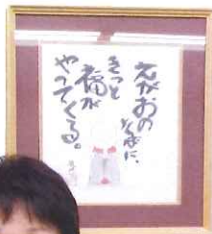 えがおの
そばに、
きっと
福が
やってくる。